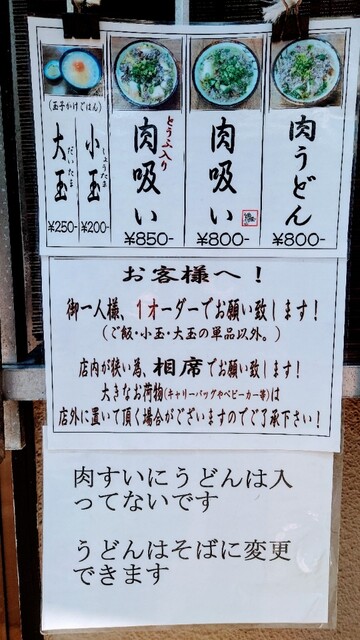 肉うどん
¥800-
肉吸い
¥800-
とうふ入り
肉吸い
¥850-
(玉子かけごはん)
小玉
しょうたま
¥200-
大玉
だいたま
¥250-
お客様へ！
御一人様、1オーダーでお願い致します！
(ご飯・小玉・大玉の単品以外。)
店内が狭い為、相席でお願い致します！
大きなお荷物(キャリーバッグやベビーカー等)は
店外に置いて頂く場合がございますのでご了承下さい！
肉すいにうどんは入
ってないです
うどんはそばに変更
できます